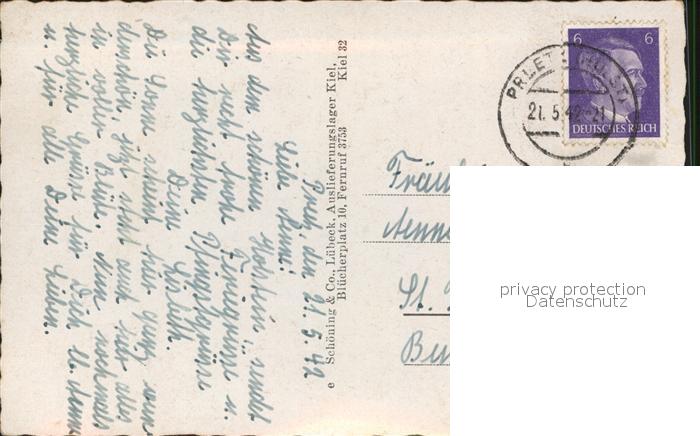 Preetz, den 21.5.42
Liebe Anne!
Aus dem schönen Holstein sendet
Dir recht frohe Feriengrüsse u.
die herzlichsten Pfingstgrüsse
Deine
Die Sonne scheint hier ganz wun-
derschön, jetzt steht auch hier alles
in voller Blüte. Nun nochmals
herzliche Grüsse für Dich lb. Anne
u. für alle Deine Lieben.
e Schöning & Co., Lübeck, Auslieferungslager Kiel,
Blücherplatz 10, Fernruf 3753 Kiel 32
6 6
DEUTSCHES REICH
PREETZ (HOLST)
21.5.42-21
Fräul
Anne
St.
privacy protection
Datenschutz